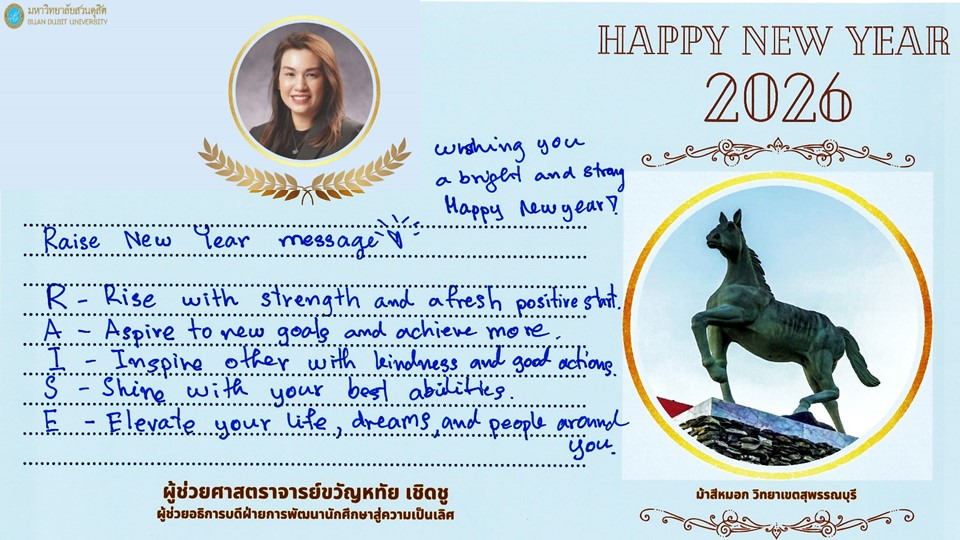 มหาวิทยาลัยสวนดุสิต
SUAN DUSIT UNIVERSITY
HAPPY NEW YEAR
2026
wishing you
a bright and strong
Happy New year!
Raise New Year message
R - Rise with strength and a fresh positive start.
A - Aspire to new goals and achieve more.
I - Inspire other with kindness and good actions.
S - Shine with your best abilities.
E - Elevate your life, dreams, and people around
you.
ผู้ช่วยศาสตราจารย์ขวัญหทัย เชิดชู
ผู้ช่วยอธิการบดีฝ่ายการพัฒนานักศึกษาสู่ความเป็นเลิศ
ม้าสีหมอก วิทยาเขตสุพรรณบุรี